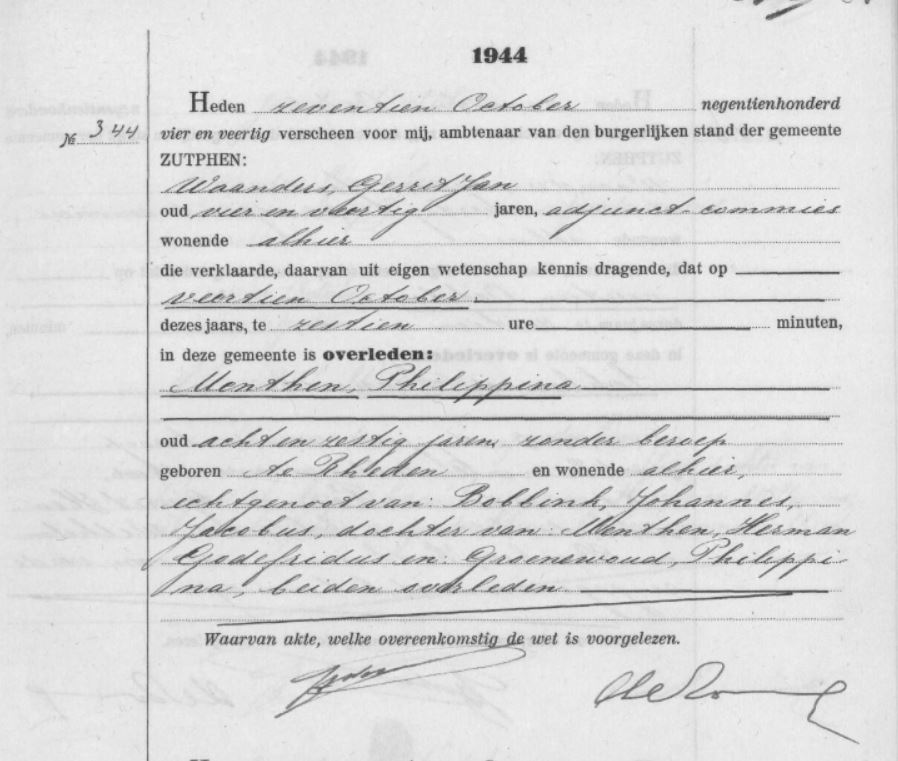 1944
Heden zeventien October negentienhonderd
№ 344 vier en veertig verscheen voor mij, ambtenaar van den burgerlijken stand der gemeente
ZUTPHEN:
Waanders, Gerrit Jan
oud vier en veertig jaren, adjunct-commies
wonende alhier
die verklaarde, daarvan uit eigen wetenschap kennis dragende, dat op
veertien October.
dezes jaars, te zestien ure minuten,
in deze gemeente is overleden:
Menthen, Philippina
oud acht en zestig jaren, zonder beroep
geboren te Rheden en wonende alhier,
echtgenoot van: Bobbink, Johannes,
Jacobus, dochter van: Menthen, Herman
Godefridus en: Groenewoud, Philippi-
na, beiden overleden
Waarvan akte, welke overeenkomstig de wet is voorgelezen.